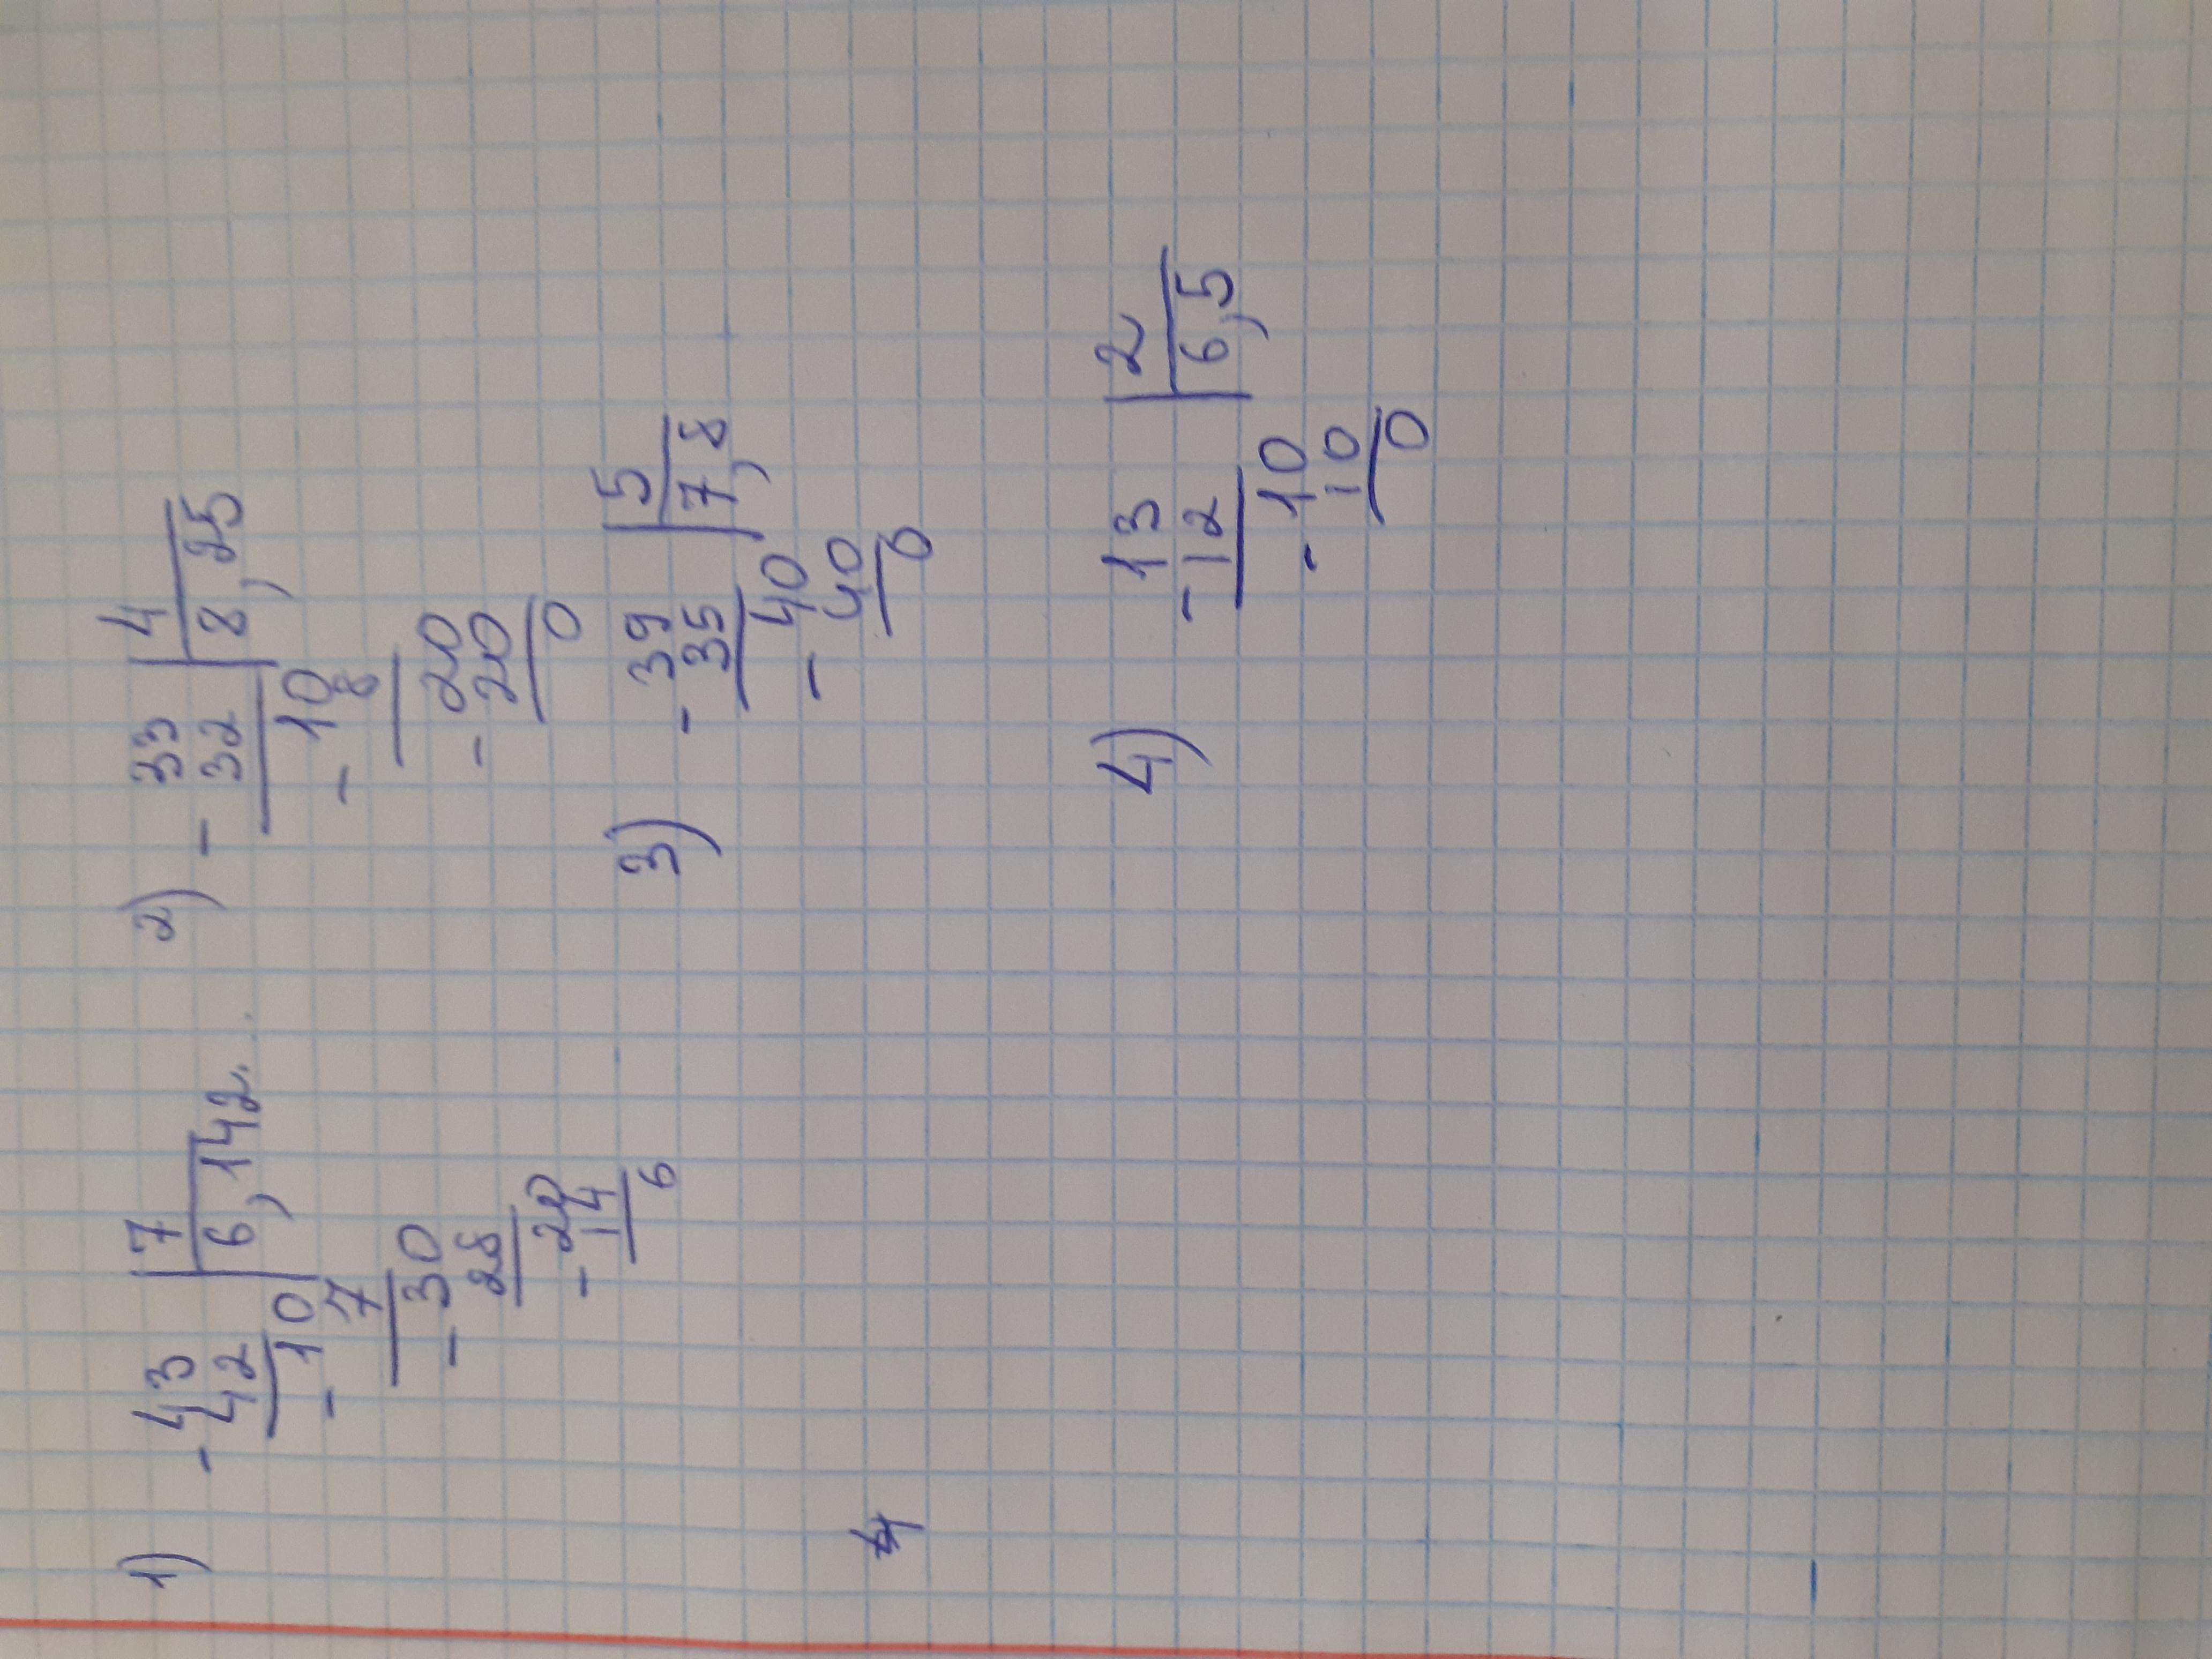 1) - 43 | 7
42 | 6,142..
- 10
7
- 30
28
- 20
14
6
2) - 33 | 4
32 | 8,25
- 10
8
- 20
20
0
3) - 39 | 5
35 | 7,8
- 40
40
0
4) - 13 | 2
12 | 6,5
- 10
10
0